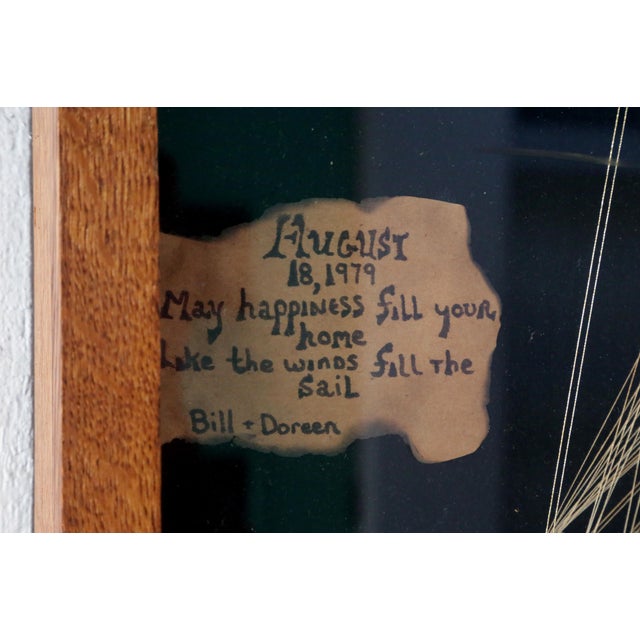 August
18, 1979
May happiness fill your
home
Like the winds fill the
Sail
Bill + Doreen